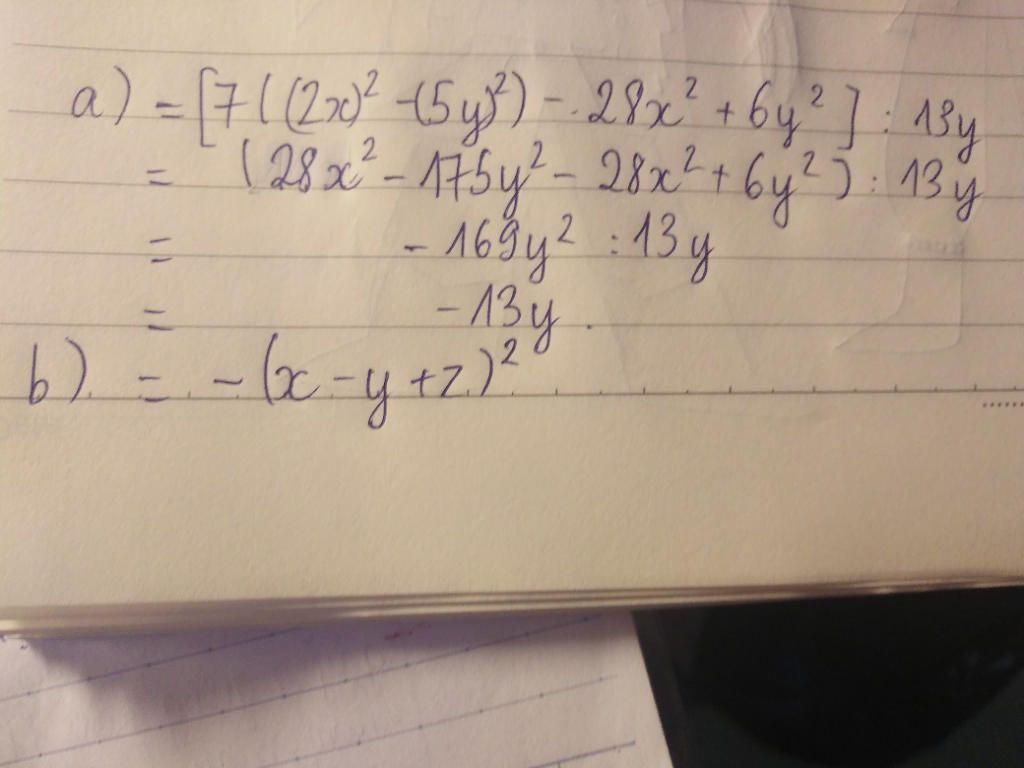 a) = [7((2x)² -(5y)²) - 28x² + 6y²] : 13y
= (28x² - 175y² - 28x² + 6y²) : 13y
= - 169y² : 13y
= -13y.
b) = -(x-y+z)²